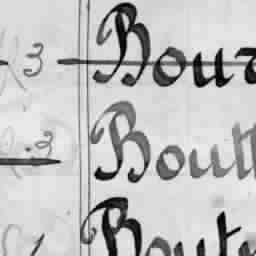 3 Bour
3 Boutt
Bout